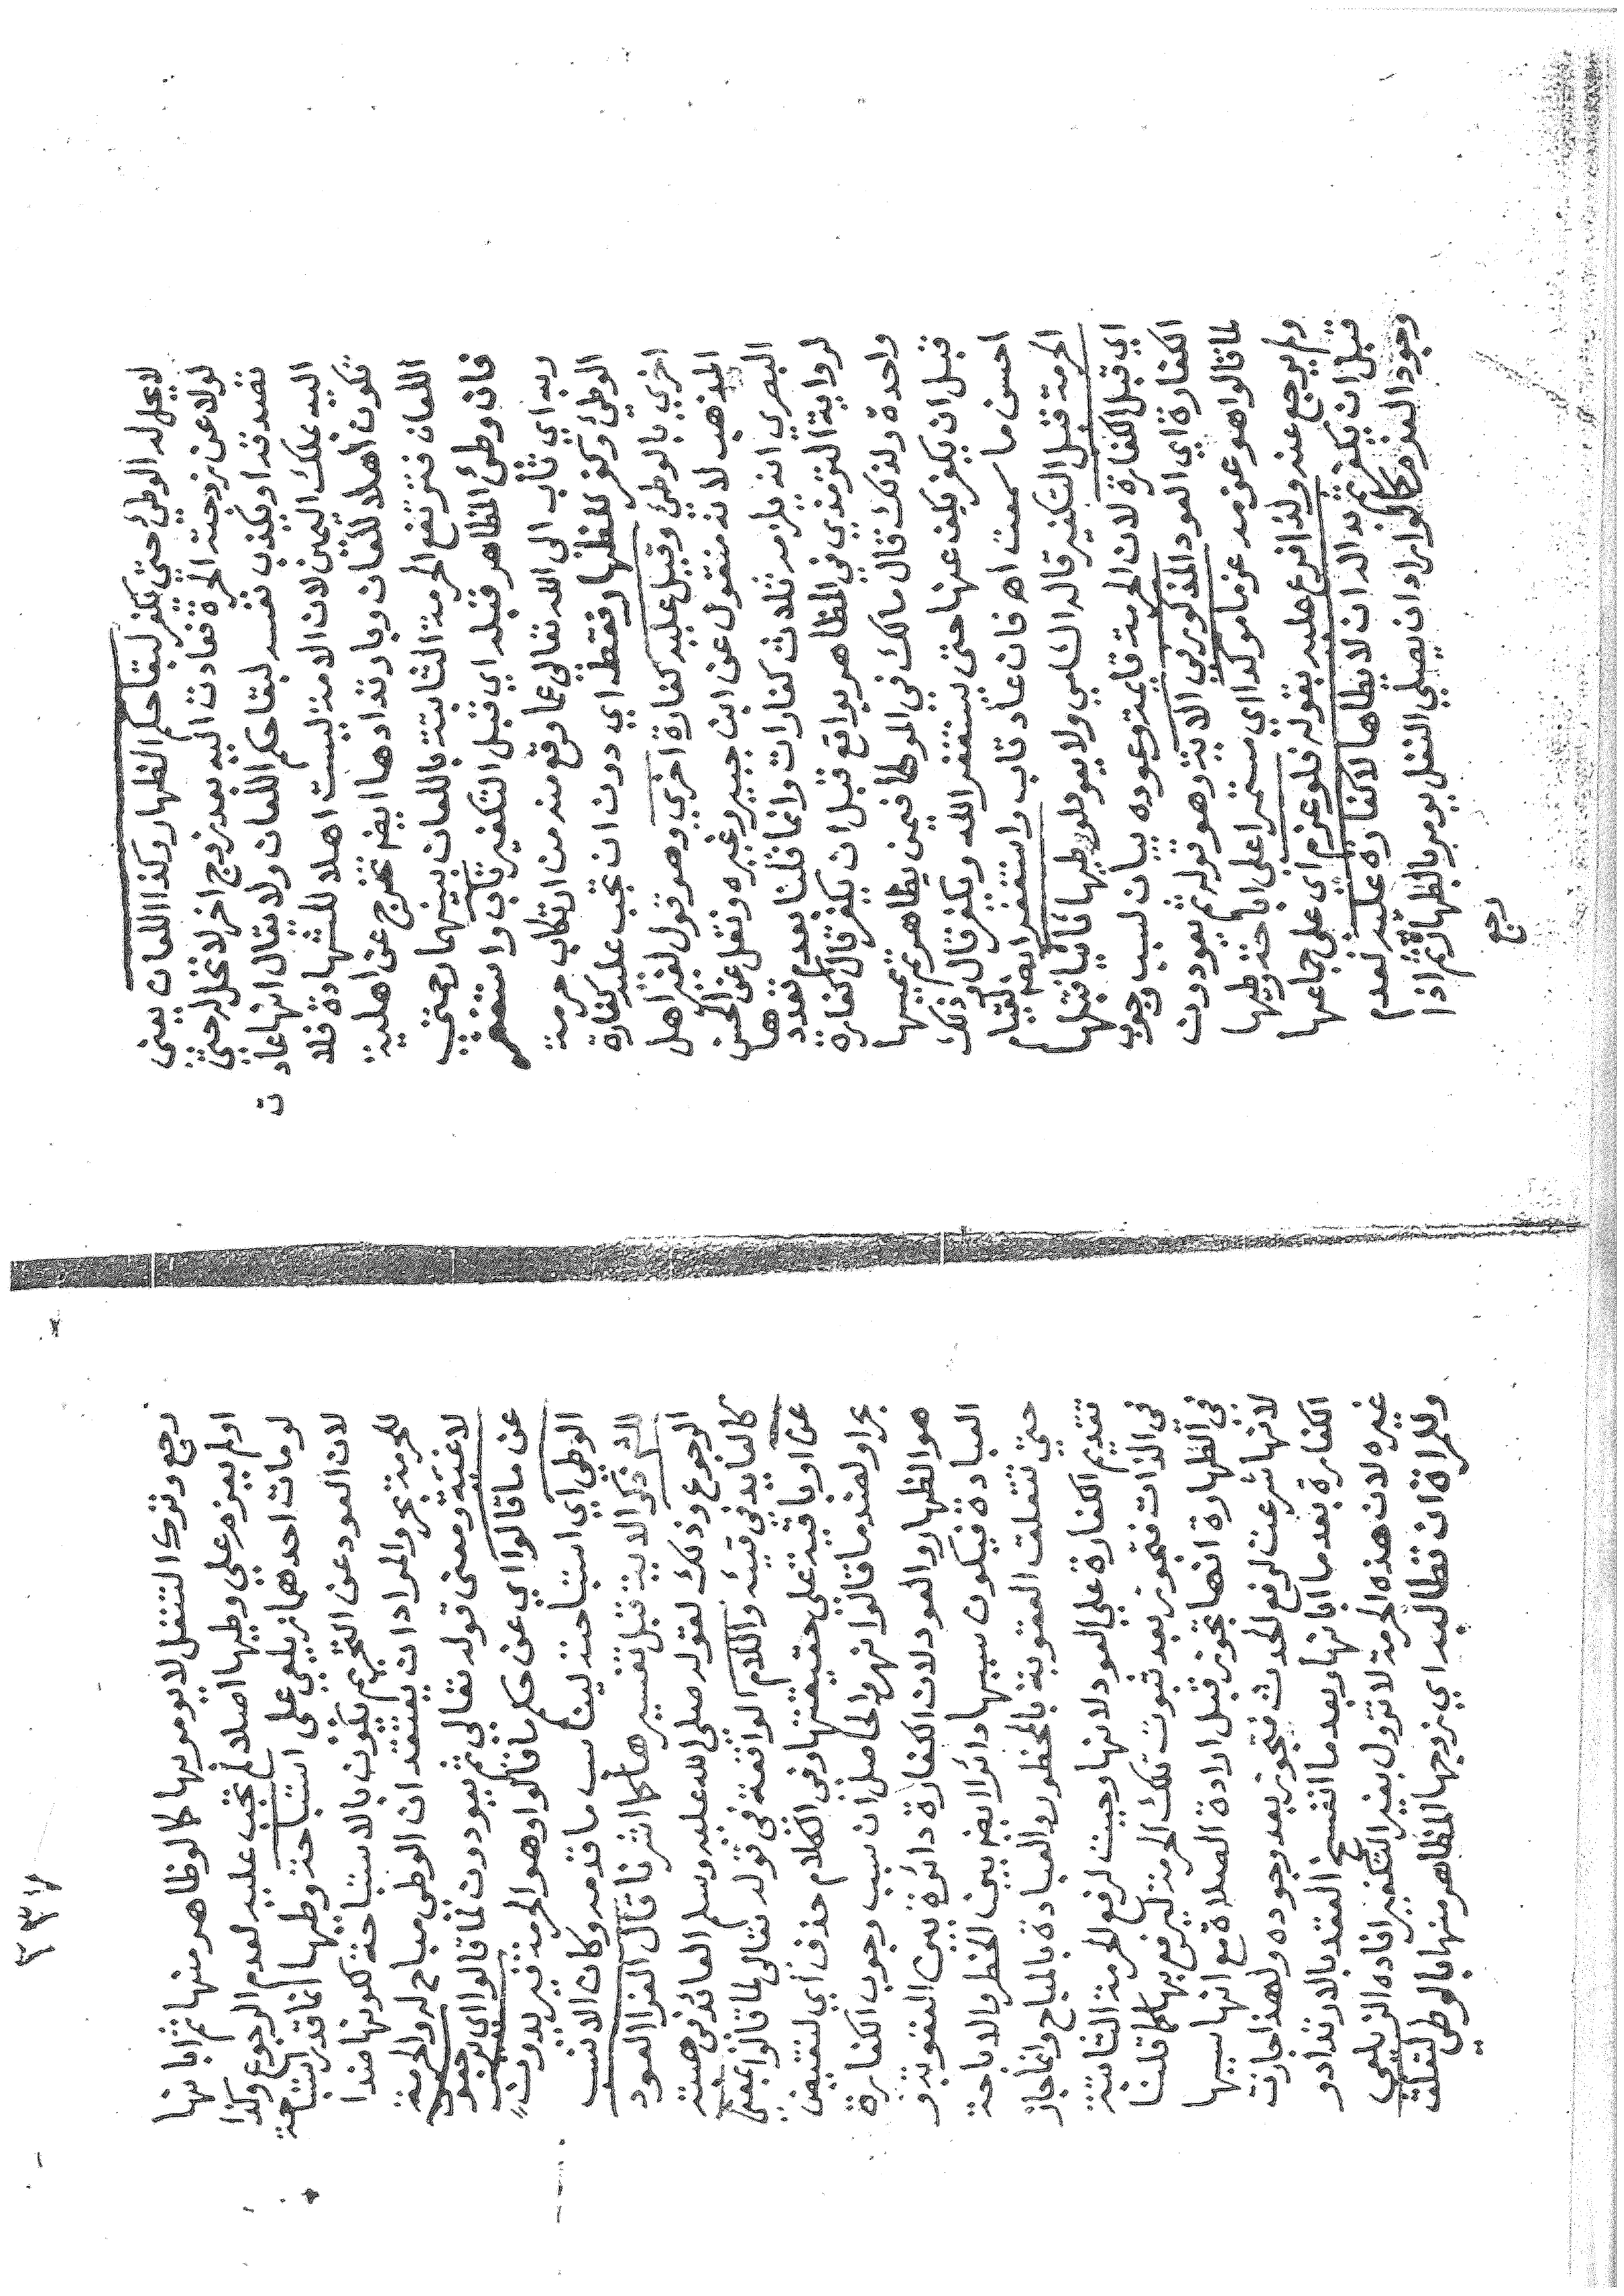 لا يحل له الوطئ حتى يكفر لبقا حكم الظهار وكذا اللعان يعنى
لو لاعن زوجته الحرة فعادت اليه بعد زوج اخر لا تحل له حتى
تصدقه او يكذب نفسه لبقا حكم اللعان ولا يقال انها عادت
اليه بملك اليمين لان الامة ليست اهلا للشهادة فلا
تكون اهلا للعان وبارتدادها ايضا تخرج عن اهلية
اللعان فترتفع الحرمة الثابتة باللعان بينهما رحمتى
فان وطئ المظاهر قبله اي قبل التكفير تاب واستغفر
ربه اي تاب الى الله تعالى عما وقع منه من ارتكاب حرمة
الوطئ وكفر للظهار فقط اي دون ان تجب عليه كفارة
اخري بالوطئ وقيل عليه كفارة اخري وهو قول لغير اهل
المذهب لانه منقول عن ابن جبير وغيره ونقل عن الحسن
البصري انه يلزمه ثلاث كفارات وانما قلنا بعدم تعددها
لرواية الترمذي في المظاهر يواقع قبل ان يكفر قال كفارة
واحدة ولذلك قال مالك في الموطا فيمن يظاهر ثم يمسها
قبل ان يكفر يكف عنها حتى يستغفر الله ويكفر قال وذلك
احسن ما سمعت اه فان عاد تاب واستغفر ايضا
الحرمة قبل التكفير قاله الشلبي ولا يعود لوطئها ثانيا قبلها
اي قبل الكفارة لان الحرمة قايمة وعوده بيان لسبب وجوب
الكفارة اي العود المذكور في الاية وهو قوله ثم يعودون
لما قالوا هو عزمه عزما موكدا اي مستمرا على اباحة وطيها
ولم يرجع عنه ولذا فرع عليه بقوله فلو عزم اي على جماعها
قبل ان يكفر ثم بدا له ان لا يطاها لا كفارة عليه لعدم
وجود العزم كما لو اراد ان يصلي النفل يومر بالطهارة ثم اذا
رجع
رجع وترك التنفل لا يومر بها كما لو ظاهر منها ثم ابانها
او لم يعزم على وطيها اصلا لم تجب عليه لعدم الرجوع وكذا
لو مات احدهما زيلعي على استباحة وطيها انما قدر استباحة
لان العود عن التحريم يكون بالاستباحة لكونها ضدا
للحرمة بحر والمراد ان يعتقد ان الوطى مباح له والحرمة
لاغية ومعنى قوله تعالى ثم يعودون لما قالوا اي
عن ما قالوا اي عن حكم ما قالوا وهو الحرمة فيريدون
الوطي اي استباحته ليناسب ما قدمه وكان الانسب
ذكر الاية قبل تفسيرها كما اشرنا قال الفرا العود
الرجوع وذلك لقوله صلى الله عليه وسلم العائد في هبته
كالعايد في قيئه واللام الواقعة في قوله تعالى لما قالوا بمعنى
عن او باقية على حقيقتها وفي الكلام حذف اي لنقيض
بحر او لضد ما قالوا نهر والحاصل ان سبب وجوب الكفارة
هو الظهار والعود لان الكفارة دائرة بين العقوبة و
العبادة فيكون سببها دائرا ايضا بين الحظر والاباحة
حتى تتعلق العقوبة بالمحظور والعبادة بالمباح وانما جاز
تقديم الكفارة على العود لانها وجبت لرفع الحرمة الثابتة
في الذات فتجوز بعد ثبوت تلك الحرمة ليرفع بها كما قلنا
في الطهارة انها تجوز قبل ارادة الصلاة مع انها سببها
لانها شرعت لرفع الحدث فتجوز بعد وجوده ولهذا جازت
الكفارة بعد ما ابانها وبعد ما انفسخ العقد بالارتداد و
غيره لان هذه الحرمة لا تزول بغير التكفير افاده الزيلعي
وللمراة ان تطالبه اي زوجها المظاهر منها بالوطي لتعلق